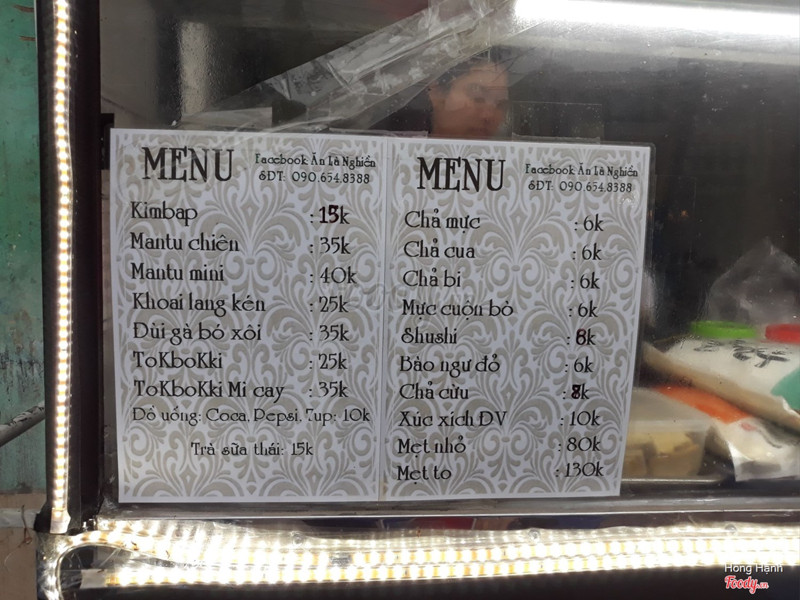 MENU
Facebook Ăn Là Nghiền
SDT: 090.654.8388
Kimbap : 15k
Mantu chiên : 35k
Mantu mini : 40k
Khoai lang kén : 25k
Đùi gà bó xôi : 35k
ToKboKki : 25k
ToKboKki Mi cay : 35k
Đồ uống: Coca, Pepsi, 7up: 10k
Trà sữa thái: 15k
MENU
Facebook Ăn Là Nghiền
SDT: 090.654.8388
Chả mực : 6k
Chả cua : 6k
Chả bí : 6k
Mực cuộn bò : 6k
Shushi : 6k
Bào ngư đỏ : 6k
Chả cừu : 8k
Xúc xích ĐV : 10k
Mẹt nhỏ : 80k
Mẹt to : 130k
Hong Hanh
Foody.vn